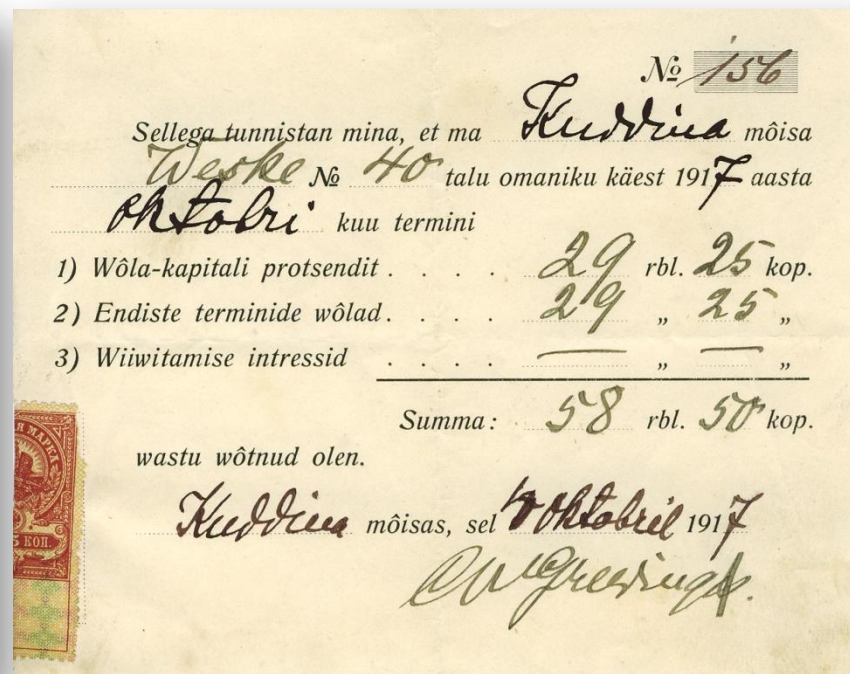 № 156
Sellega tunnistan mina, et ma Kuddina môisa
Weske № 40 talu omaniku käest 1917 aasta
oktobri kuu termini
1) Wôla-kapitali protsendit . . . . 29 rbl. 25 kop.
2) Endiste terminide wôlad . . . . 29 „ 25 „
3) Wiiwitamise intressid . . . . — „ — „
Summa: 58 rbl. 50 kop.
wastu wôtnud olen.
Kuddina môisas, sel oktobril 1917
Я МАРКА
5 КОП.